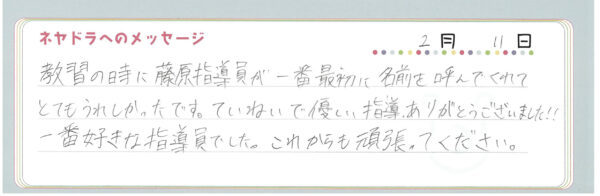 ネヤドラへのメッセージ
2月 11日
教習の時に藤原指導員が一番最初に名前を呼んでくれて
とてもうれしかったです。ていねいで優しい指導、ありがとうございました!!
一番好きな指導員でした。これからも頑張ってください。